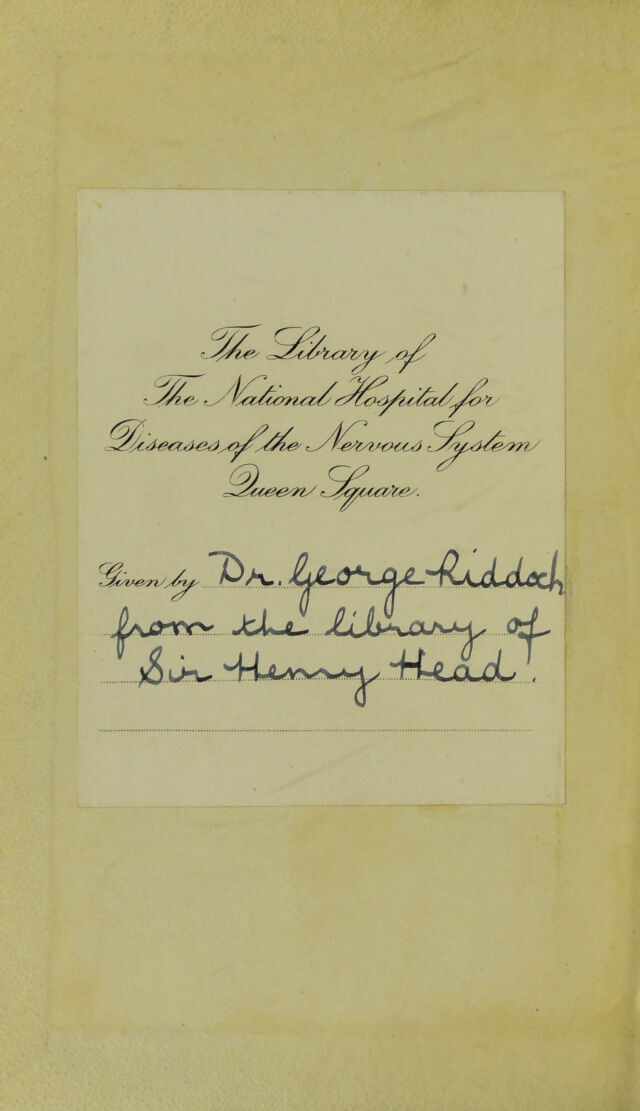 The Library of
The National Hospital for
Diseases of the Nervous System
Queen Square.
Given by Dr. George Riddoch
from the library of
Sir Henry Head.